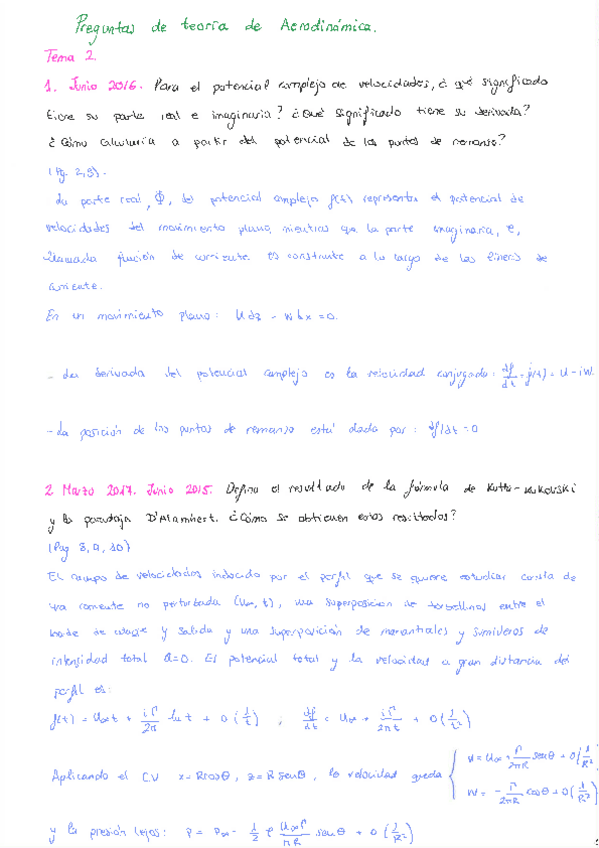 Preguntas de teoría de Aerodinámica.
Tema 2.
1. Junio 2016. Para el potencial complejo de velocidades, ¿qué significado
tiene su parte real e imaginaria? ¿Qué significado tiene su derivada?
¿Cómo calcularía a partir del potencial de los puntos de remanso?
(Pg. 2,3).
La parte real, Φ, del potencial complejo f(t) representa el potencial de
velocidades del movimiento plano, mientras que la parte imaginaria, Ψ,
llamada función de corriente es constante a lo largo de las líneas de
corriente.
En un movimiento plano: U dz - W dx = 0.
- La derivada del potencial complejo es la velocidad conjugada: df/dt = f(t) = U - iW.
- La posición de los puntos de remanso está dada por: df/dt = 0
2 Marzo 2017. Junio 2015. Defina el resultado de la fórmula de Kutta-Yukovski
y la paradoja D'Alambert. ¿Cómo se obtienen estos resultados?
(Pag 8, 9, 10)
El campo de velocidades inducido por el perfil que se quiere estudiar consta de
una corriente no perturbada (U∞, t), una superposición de torbellinos entre el
borde de ataque y salida y una superposición de manantiales y sumideros de
intensidad total Q=0. El potencial total y la velocidad a gran distancia del
perfil es:
f(t) = U∞ t + iΓ/2π ln t + O(1/t) ; df/dt = U∞ + iΓ/2πt + O(1/t²)
Aplicando el CV x = R cosθ, z = R senθ, la velocidad queda { U = U∞ + Γ/2πR senθ + O(1/R²)
W = - Γ/2πR cosθ + O(1/R²)
y la presión lejos: P = P∞ - 1/2 ρ U∞Γ/πR senθ + O(1/R²)